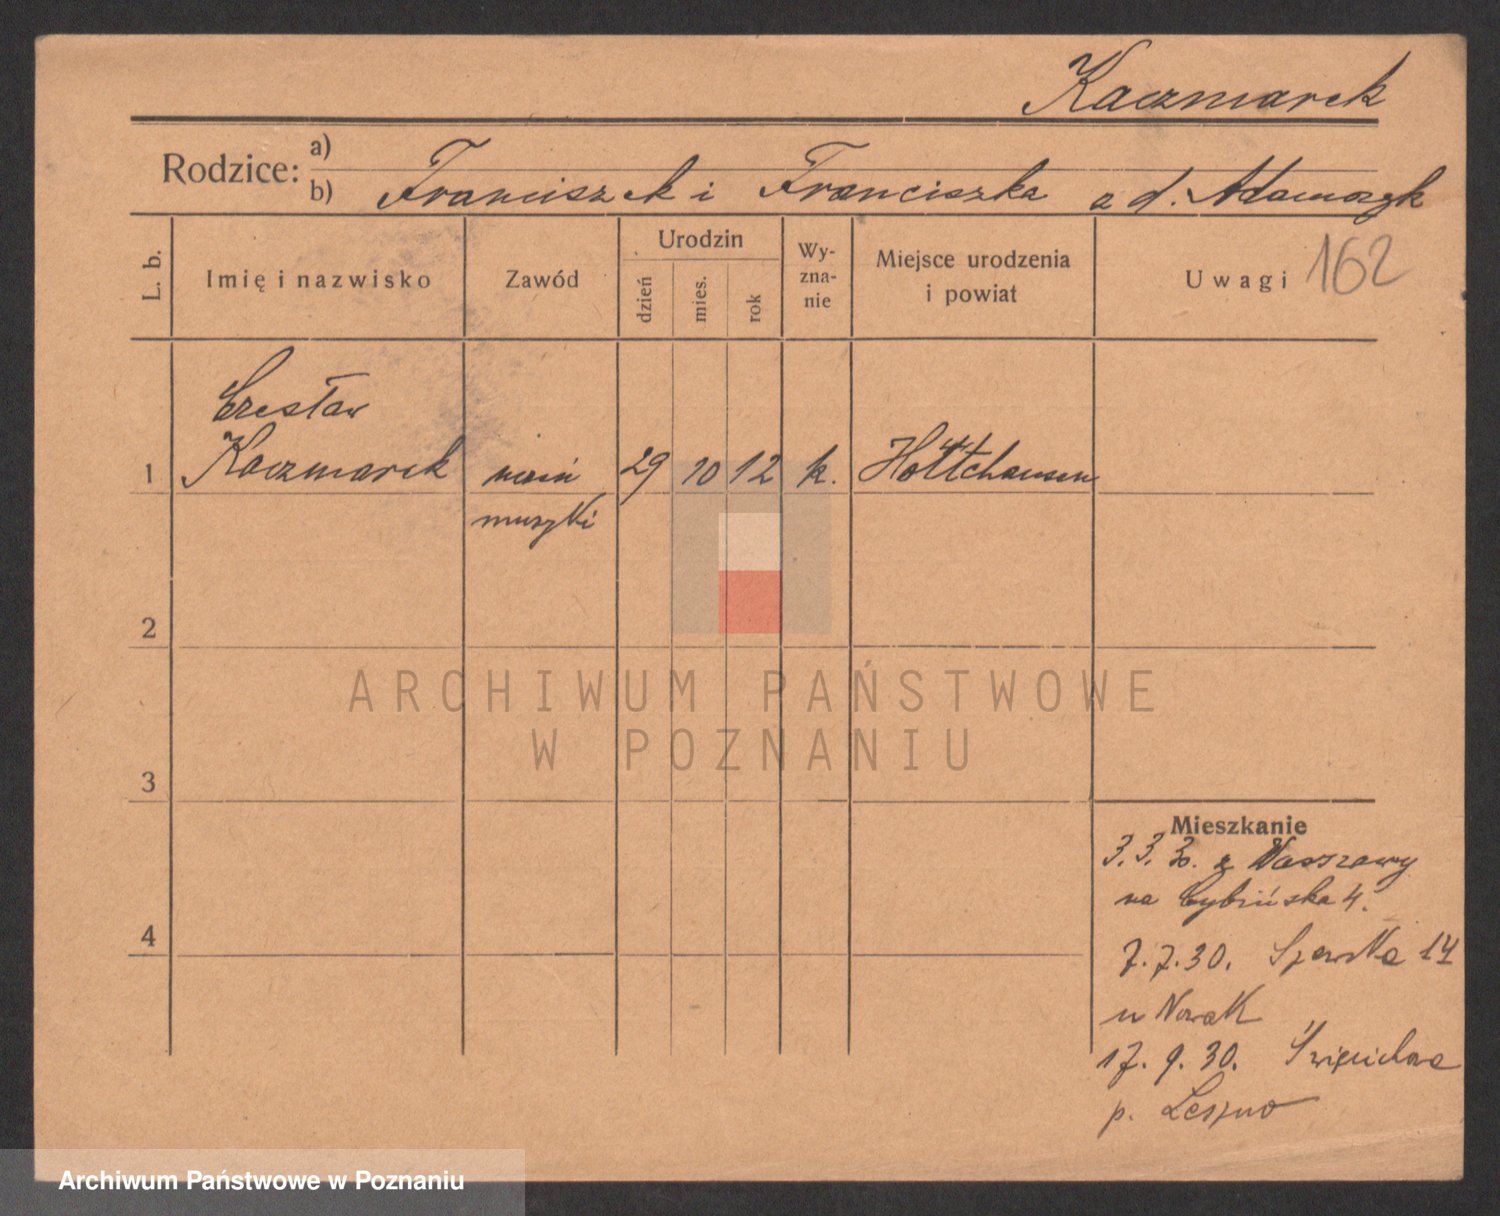 Kaczmarek
Rodzice: a)
b) Franciszek i Franciszka z d. Adamczyk
L. b.
Imię i nazwisko
Zawód
Urodzin
dzień
mies.
rok
Wy-
zna-
nie
Miejsce urodzenia
i powiat
Uwagi 162
Czesław
1 Kaczmarek uczeń 29 10 12 k.
muzyki
2
3
4
Mieszkanie
3.3.30. z Warszawy
na Cybińska 4.
7.7.30. Szewska 14
u Nowak
17.9.30. Święciechowa
p. Leszno
ARCHIWUM PAŃSTWOWE
W POZNANIU
Archiwum Państwowe w Poznaniu